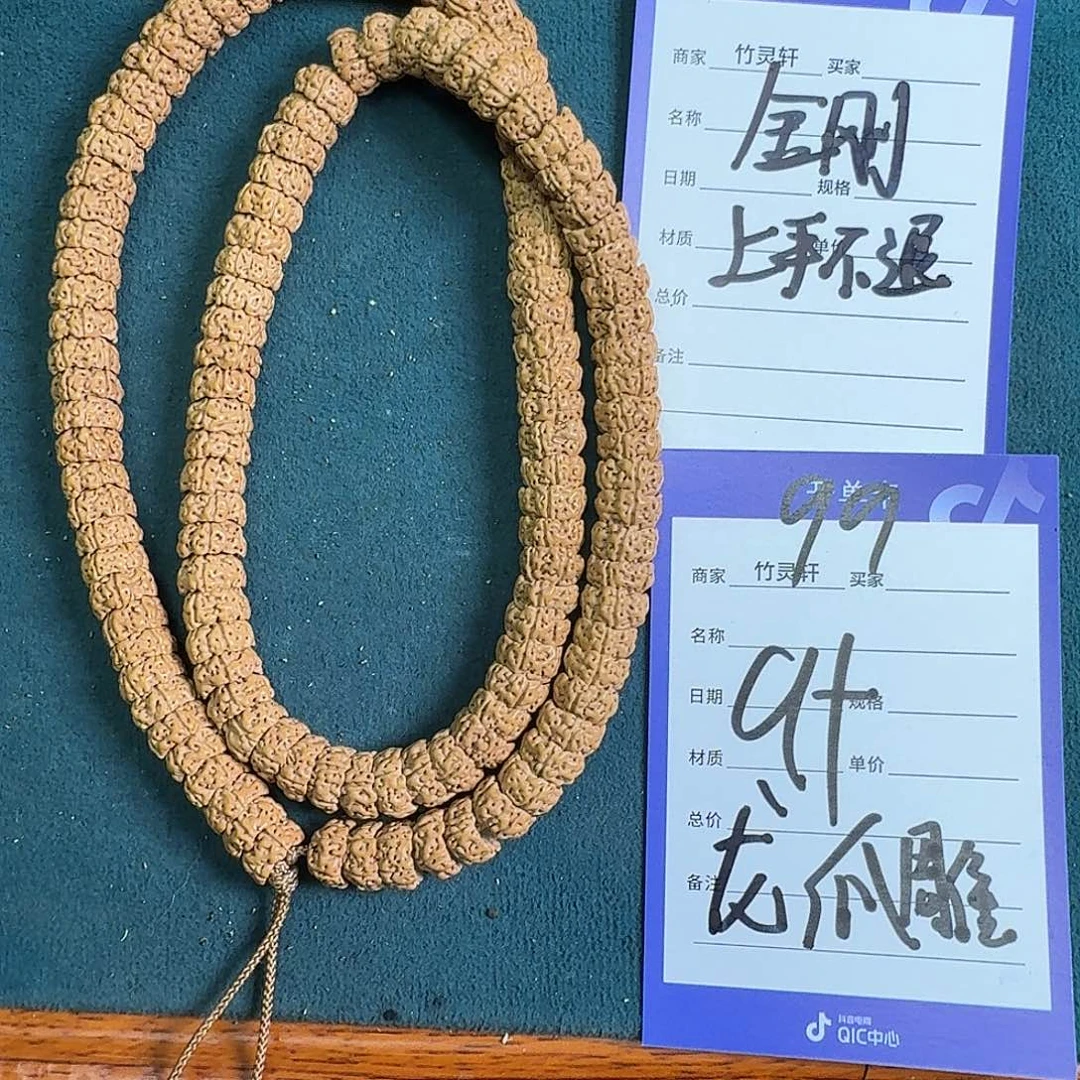 商家 竹灵轩 买家
名称 金刚
日期 规格
材质 上手不退 单价
总价
备注
99
商家 竹灵轩 买家
名称
日期 规格
材质 单价
总价
备注 龙爪雕
抖音电商
QIC中心